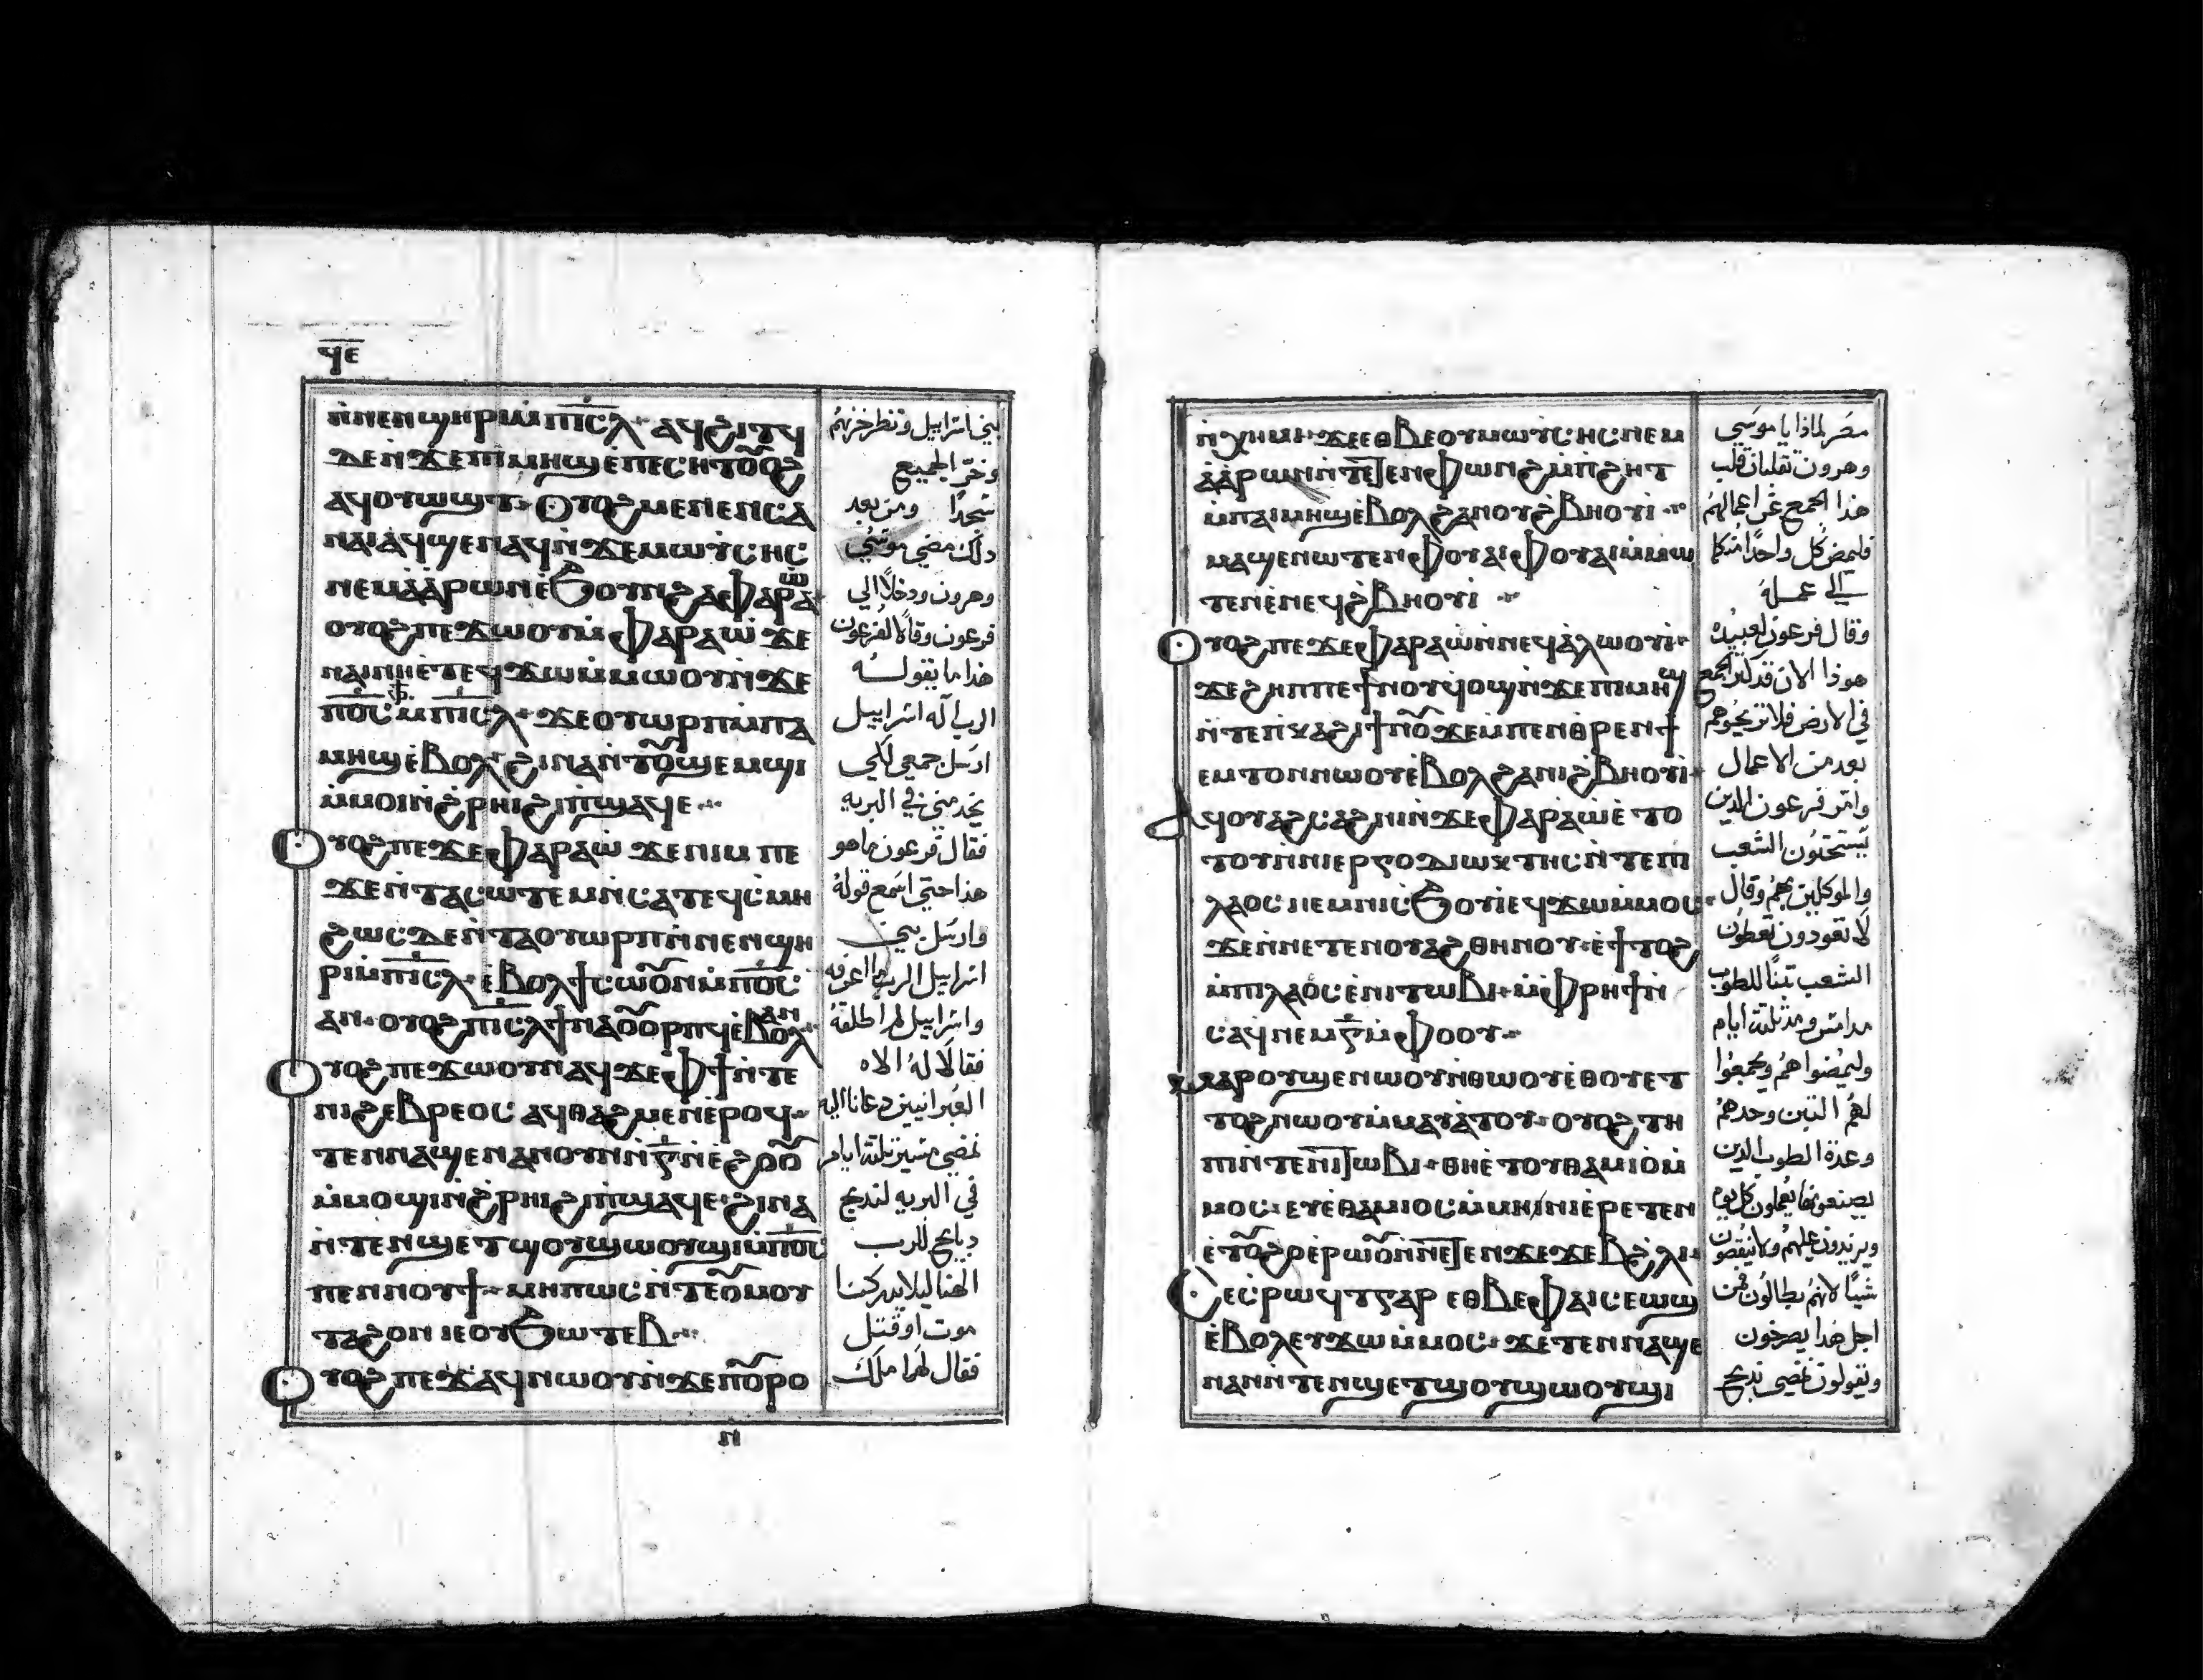 ϥⲉ
ⲛ̀ⲛⲉⲛϣⲏⲣⲓⲙ̀ⲡⲓⲥⲗ ⲁϥϩⲓⲧϥ
ϧⲉⲛ̀ϫⲉⲡⲓⲙⲏϣⲉ̀ⲡⲉⲥⲏⲧⲟ̄ⲟϩ
ⲁϥⲟⲩⲱϣⲧ ⲟⲩⲟϩⲙⲉⲛⲉⲛⲥⲁ
ⲛⲁⲓⲁϥϣⲉⲛⲁϥⲛ̀ϫⲉⲙⲱⲩⲥⲏⲥ
ⲛⲉⲙⲁ̀ⲁ̀ⲣⲱⲛⲉ̀ϧⲟⲩⲛϩⲁⲫⲁⲣⲁⲱ̀
ⲟⲩⲟϩⲡⲉϫⲱⲟⲩⲙ̀ⲫⲁⲣⲁⲱ̀ ϫⲉ
ⲛⲁⲓⲛⲏⲉ̀ⲧⲉϥϫⲱⲙ̀ⲙⲱⲟⲩⲛ̀ϫⲉ
ⲡⲟ̄ⲥ̄ⲫϯⲙ̀ⲡⲓⲥⲗ ϫⲉⲟⲩⲱⲣⲡⲙ̀ⲡⲁ
ⲙⲏϣⲉ̀ⲃⲟⲗϩⲓⲛⲁⲛ̀ⲧⲟ̄ϣⲉⲙϣⲓ
ⲙ̀ⲙⲟⲓⲛ̀ϩⲣⲏⲓϩⲓⲡ̀ϣⲁϥⲉ
ⲟⲩⲟϩⲡⲉϫⲉⲫⲁⲣⲁⲱ̀ ϫⲉⲛⲓⲙ ⲡⲉ
ϫⲉⲛ̀ⲧⲁⲥⲱⲧⲉⲙⲛ̀ⲥⲁⲧⲉϥⲥ̀ⲙⲏ
ϩⲱⲥϧⲉⲛ̀ⲧⲁⲟⲩⲱⲣⲡⲛ̀ⲛⲉⲛϣⲏ
ⲣⲓⲙ̀ⲡⲓⲥⲗ ⲉ̀ⲃⲟⲗϯⲥⲱⲟ̄ⲛⲙ̀ⲡⲟ̄ⲥ̄
ⲁⲛ ⲟⲩⲟϩⲡⲓⲥⲗϯⲛⲁⲟ̄ⲟⲣⲡϥⲉ̀ⲃⲟⲗⲁⲛ
ⲟⲩⲟϩⲡⲉϫⲱⲟⲩⲛⲁϥϫⲉⲫϯⲛ̀ⲧⲉ
ⲛⲓϩⲉⲃⲣⲉⲟⲥ ⲁϥⲑⲁϩⲙⲉⲛⲉ̀ⲣⲟϥ
ⲧⲉⲛⲛⲁϣⲉⲛⲁⲛⲟⲩⲛⲛ̀ⲅ̄ⲛⲉ̀ϩⲟⲟ̄
ⲙ̀ⲙⲟϣⲓⲛ̀ϩⲣⲏⲓϩⲓⲡ̀ϣⲁϥⲉ ϩⲓⲛⲁ
ⲛ̀ⲧⲉⲛϣⲉⲧϣⲟⲩϣⲱⲟⲩϣⲓⲙ̀ⲡⲟ̄ⲥ̄
ⲡⲉⲛⲛⲟⲩϯ ⲙⲏⲡⲱⲥⲛ̀ⲧⲉⲟ̄ⲙⲟⲩ
ⲧⲁϩⲟⲛ ⲓⲉⲟⲩϧⲱⲧⲉⲃ
ⲟⲩⲟϩⲡⲉϫⲁϥⲛⲱⲟⲩⲛ̀ϫⲉⲡⲟ̄ⲣⲟ
ⲛ
بني اسراييل ونظر حزنهم
وخر الجميع
سجدًا ومن بعد
ذلك مضي موسي
وهرون ودخلا الي
فرعون وقالا لفرعون
هذا ما يقوله
الرب اله اسراييل
ارسل جمعي لكي
يخدمني في البريه
فقال فرعون ما هو
هذا حتي اسمع قوله
وارسل بني
اسراييل الرب ما اعرفه
واسراييل لم اطلقه
فقالا له الاه
العبرانيين دعانا اليه
نمضي مسير ثلثة ايام
في البريه لنذبح
ذبايح للرب
الهنا ليلا يدركنا
موت او قتل
فقال لهما ملك
ⲛ̀ⲭⲏⲙⲓ ϫⲉⲉⲑⲃⲉⲟⲩⲙⲱⲩⲥⲏⲥⲛⲉⲙ
ⲁ̀ⲁ̀ⲣⲱⲛⲛ̀ⲧⲉⲧⲉⲛⲫⲱⲛϩⲙ̀ⲡ̀ϩⲏⲧ
ⲙ̀ⲡⲁⲓⲙⲏϣⲉ̀ⲃⲟⲗϩⲁⲛⲟⲩϩⲃⲏⲟⲩⲓ
ⲙⲁϣⲉⲛⲱⲧⲉⲛⲫⲟⲩⲁⲓⲫⲟⲩⲁⲓⲙ̀ⲙⲱ
ⲧⲉⲛⲉ̀ⲛⲉϥϩⲃⲏⲟⲩⲓ
ⲟⲩⲟϩⲡⲉϫⲉⲫⲁⲣⲁⲱ̀ⲛ̀ⲛⲉϥⲁ̀ⲗⲱⲟⲩⲓ
ϫⲉϩⲏⲡⲡⲉϯⲛⲟⲩϥⲟϣⲛ̀ϫⲉⲡⲓⲙⲏϣ
ⲛ̀ⲧⲉⲡⲕⲁϩⲓϯⲛⲟ̄ϫⲉⲙ̀ⲡⲉⲛⲑⲣⲉⲛϯ
ⲉⲙⲧⲟⲛⲛⲱⲟⲩⲉ̀ⲃⲟⲗϩⲁⲛⲓϩⲃⲏⲟⲩⲓ
ⲁϥⲟⲩⲁϩⲥⲁϩⲛⲓⲛ̀ϫⲉⲫⲁⲣⲁⲱ̀ⲉ̀ ⲧⲟ
ⲧⲟⲩⲛ̀ⲛⲓⲉⲣⲅⲟⲇⲓⲱⲕⲧⲏⲥⲛ̀ⲧⲉⲡⲓ
ⲗⲁⲟⲥ ⲛⲉⲙⲛⲓⲥϧⲟⲩⲓⲉϥϫⲱⲙ̀ⲙⲟⲥ
ϫⲉⲛ̀ⲛⲉⲧⲉⲛⲟⲩⲁϩⲑⲏⲛⲟⲩ ⲉ̀ϯⲧⲟϩ
ⲙ̀ⲡⲓⲗⲁⲟ̀ⲥⲉ̀ⲛⲓⲧⲱⲃⲓ ⲙ̀ⲫⲣⲏϯⲛ̀
ⲥⲁϥⲛⲉⲙⲅ̄ⲙ̀ⲫⲟⲟⲩ
ⲙⲁⲣⲟⲩϣⲉⲛⲱⲟⲩⲛ̀ⲑⲱⲟⲩⲉ̀ⲑⲟⲩⲉⲧ
ⲧⲟϩⲛⲱⲟⲩⲙ̀ⲙⲁⲩⲁ̀ⲧⲟⲩ ⲟⲩⲟϩ ⲧⲏ
ⲡⲓⲛ̀ⲧⲉⲛⲓⲧⲱⲃⲓ ⲑⲏⲉ̀ⲧⲟⲩⲑⲁⲙⲓⲟ̀ⲙ̀
ⲙⲟⲥ ⲉⲩⲉ̀ⲑⲁⲙⲓⲟⲥⲙ̀ⲙⲏⲛⲓⲉ̀ⲣⲉⲧⲉⲛ
ⲉ̀ⲧⲟ̄ϩⲟⲉ̀ⲣⲱⲟ̄ⲛ̀ⲛⲉⲧⲉⲛϫⲉϫⲉⲃϩ̀ⲗⲓ
ⲥⲉⲥ̀ⲣⲱϥⲧⲅⲁⲣ ⲉⲑⲃⲉⲫⲁⲓⲥⲉⲱϣ
ⲉ̀ⲃⲟⲗⲉⲩϫⲱⲙ̀ⲙⲟⲥ ϫⲉⲧⲉⲛⲛⲁϣⲉ
ⲛⲁⲛⲛ̀ⲧⲉⲛϣⲉⲧϣⲟⲩϣⲱⲟⲩϣⲓ
مصر لماذا يا موسي
وهرون تقلبان قلب
هذا الجمع عن اعمالهم
فليمض كل واحدًا منكما
الي عمله
وقال فرعون لعبيده
هوذا الان قد كثر الجمع
في الارض فلا تريحوهم
بعد من الاعمال
وامر فرعون الذين
يستحثون الشعب
والموكلين بهم وقال
لا تعودون تعطون
الشعب تبنًا للطوب
مذ امس ومذ ثلثة ايام
وليمضوا هم ويجمعوا
لهم التبن وحدهم
وعدة الطوب الذين
يصنعونها يعملون كل يوم
ويزيدون عليهم ولا تنقصون
شيًا لانهم بطالون فمن
اجل هذا يصرخون
ويقولون نمضي نذبح